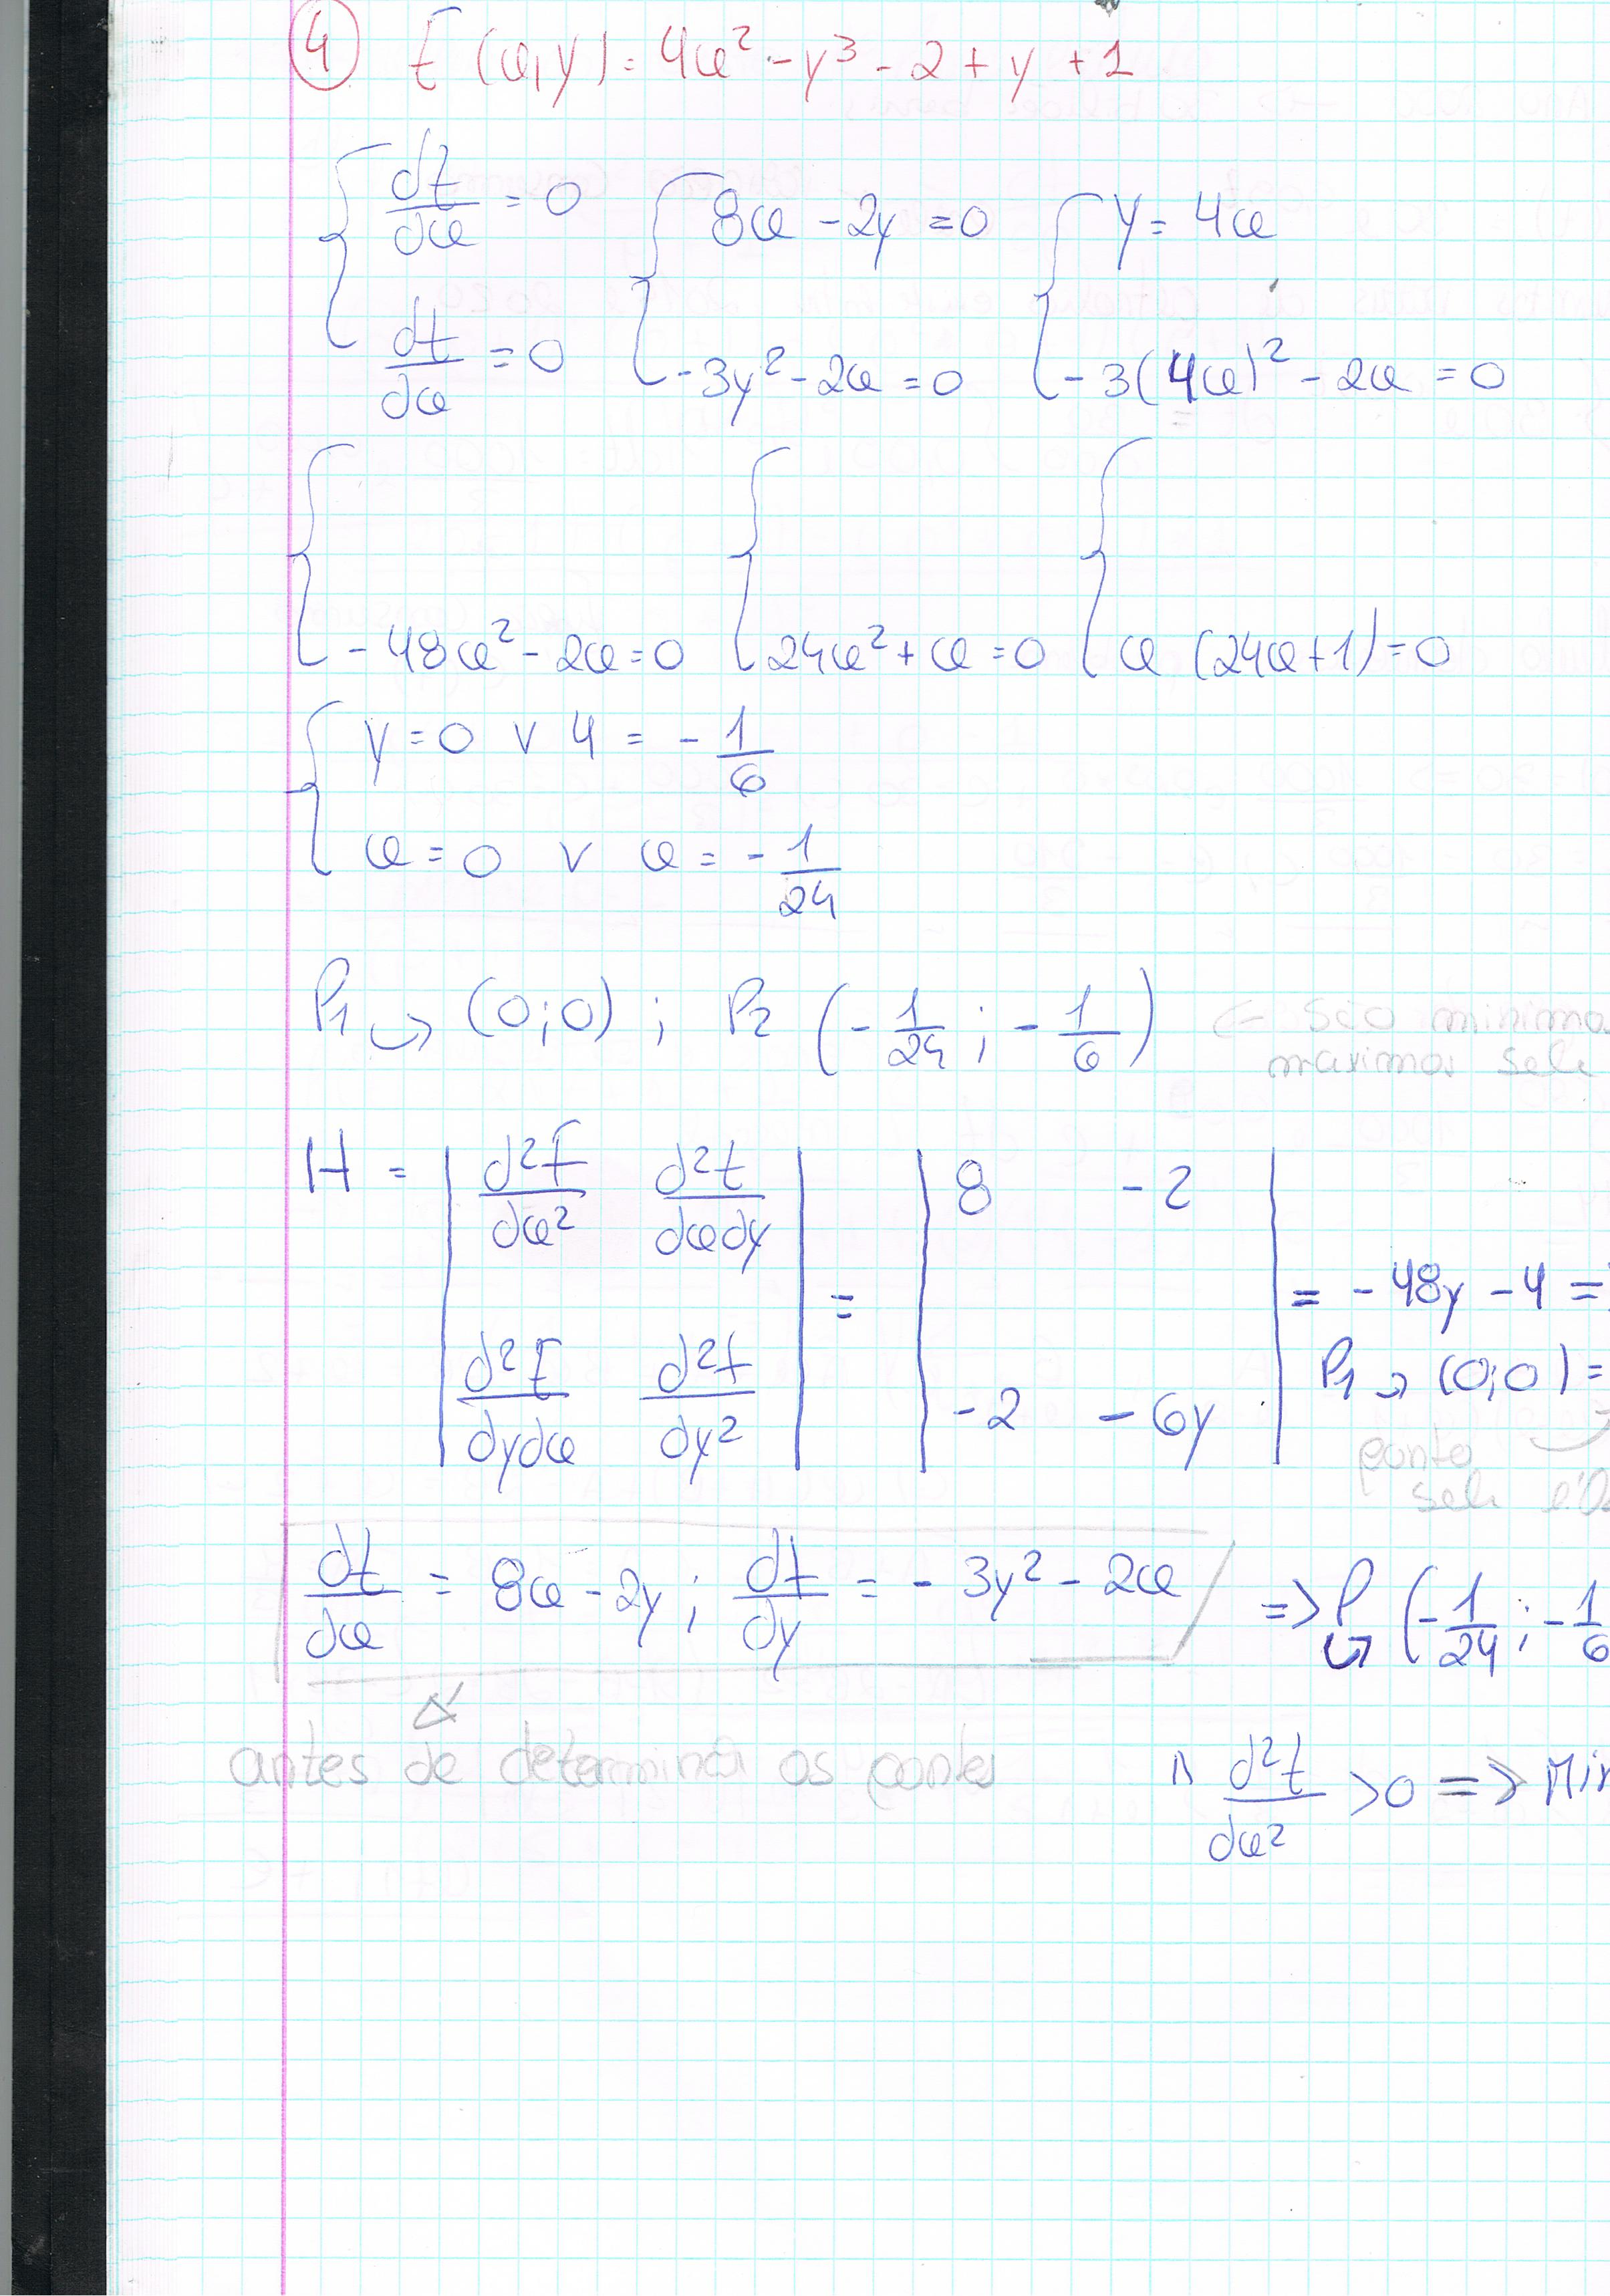 ④ F(x,y) = 4x² - y³ - 2 + y + 1
{ df/dx = 0 { 8x - 2y = 0 { y = 4x
df/dx = 0 -3y² - 2x = 0 -3(4x)² - 2x = 0
{ -48x² - 2x = 0 { 24x² + x = 0 { x (24x+1) = 0
{ y = 0 ∨ 4 = -1/6
x = 0 ∨ x = -1/24
P1 ↪ (0;0) ; P2 (-1/24 ; -1/6) ← são minimo
maximos sela
H = | d²f/dx² d²f/dxdy | = | 8 -2 |
= -48y - 4 =
| d²f/dydx d²f/dy² | | -2 -6y | P1 ↪ (0;0) =
ponto
sela
df/dx = 8x - 2y ; df/dy = -3y² - 2x => P ↪ (-1/24 ; -1/6
antes de determinar os pontos
∧ d²f/dx² > 0 => Min